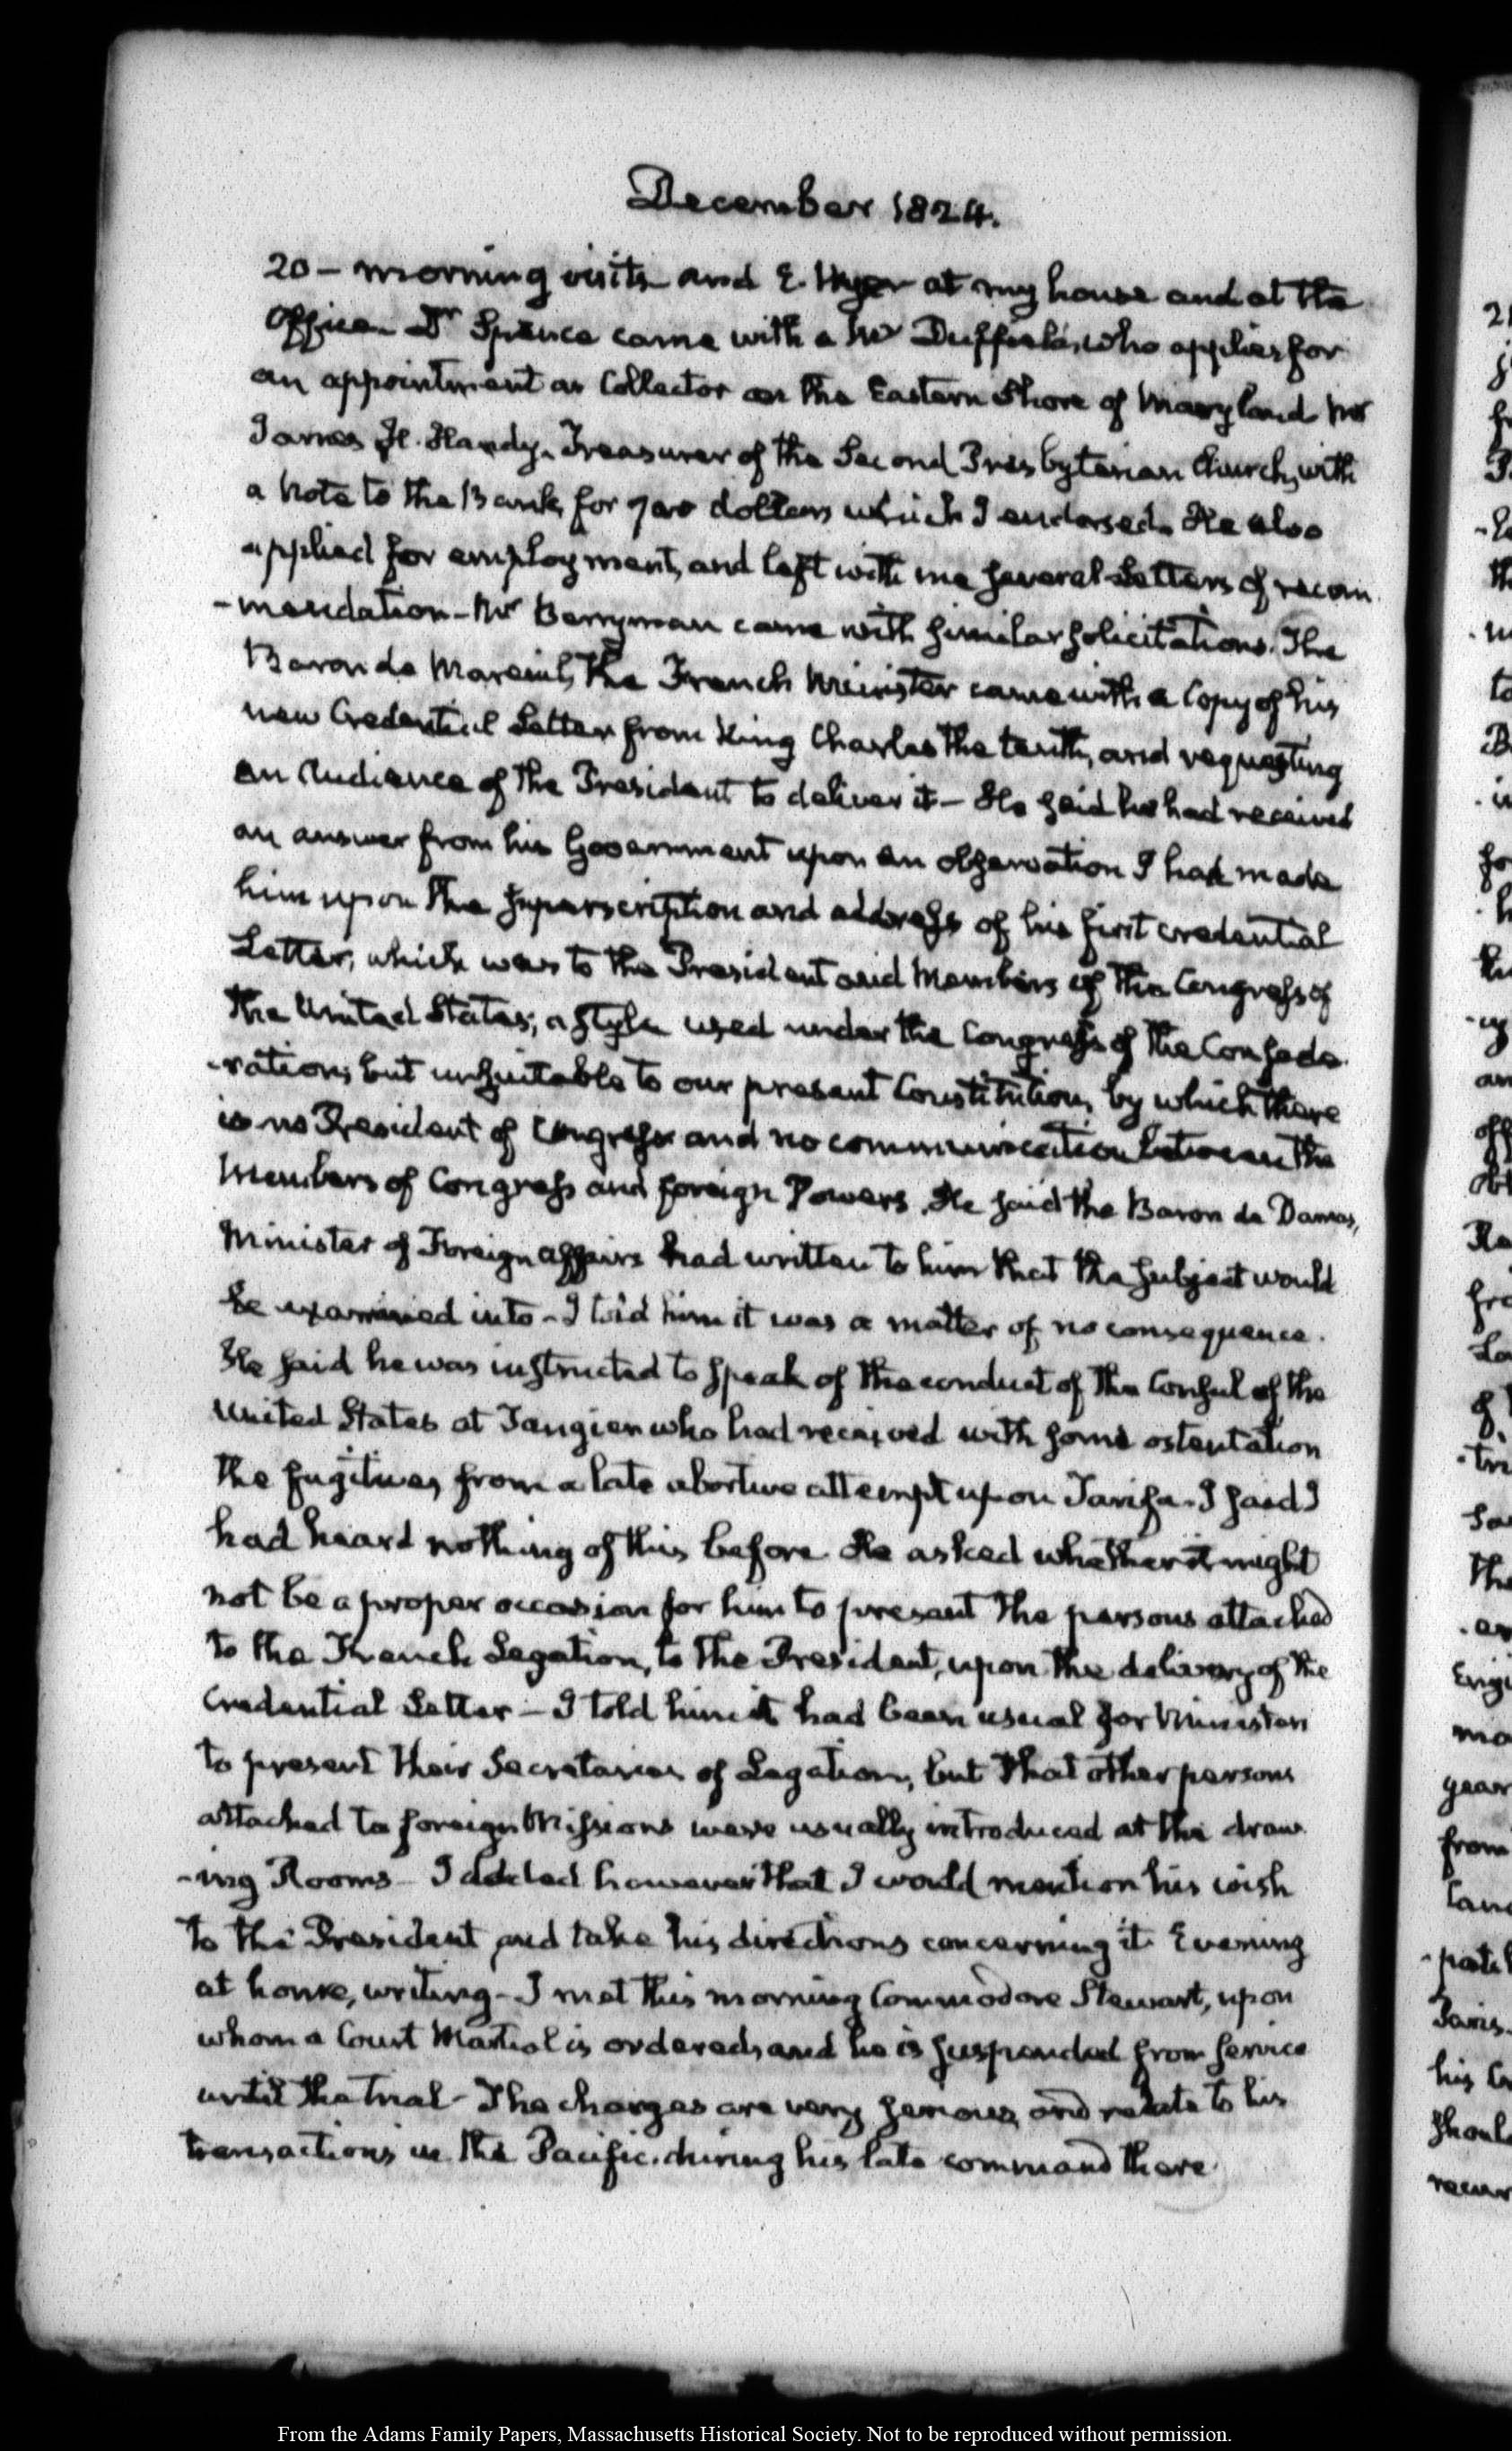 December 1824.
20 - morning visits and E. Wyer at my house and at the
Office. Dr Spence came with a Mr Duffield, who applies for
an appointment as Collector on the Eastern Shore of Maryland Mr
James H. Handy, Treasurer of the Second Presbyterian Church, with
a Note to the Bank, for 700 dollars which I endorsed. He also
applied for employment, and left with me several Letters of recom
-mendation - Mr Berryman came with similar solicitations. The
Baron de Mareuil, the French Minister came with a Copy of his
new Credential Letter from King Charles the tenth, and requesting
an Audience of the President to deliver it - He said he had received
an answer from his Government upon an observation I had made
him upon the superscription and address of his first credential
Letter, which was to the President and Members of the Congress of
the United States; a style used under the Congress of the Confede
-ration; but unsuitable to our present Constitution, by which there
is no President of Congress and no communication between the
Members of Congress and foreign Powers. He said the Baron de Damas,
Minister of Foreign affairs had written to him that the subject would
be examined into - I told him it was a matter of no consequence.
He said he was instructed to speak of the conduct of the Consul of the
United States at Tangier who had received with some ostentation
the fugitives from a late abortive attempt upon Tarifa. I said I
had heard nothing of this before. He asked whether it might
not be a proper occasion for him to present the persons attached
to the French Legation, to the President, upon the delivery of the
Credential Letter - I told him it had been usual for Ministers
to present their Secretaries of Legation, but that other persons
attached to foreign Missions were usually introduced at the draw
-ing Rooms - I added however that I would mention his wish
to the President and take his directions concerning it. Evening
at home, writing - I met this morning Commodore Stewart, upon
whom a Court Martial is ordered, and he is suspended from service
until the trial - The charges are very serious, and relate to his
transactions in the Pacific, during his late command there.
From the Adams Family Papers, Massachusetts Historical Society. Not to be reproduced without permission.